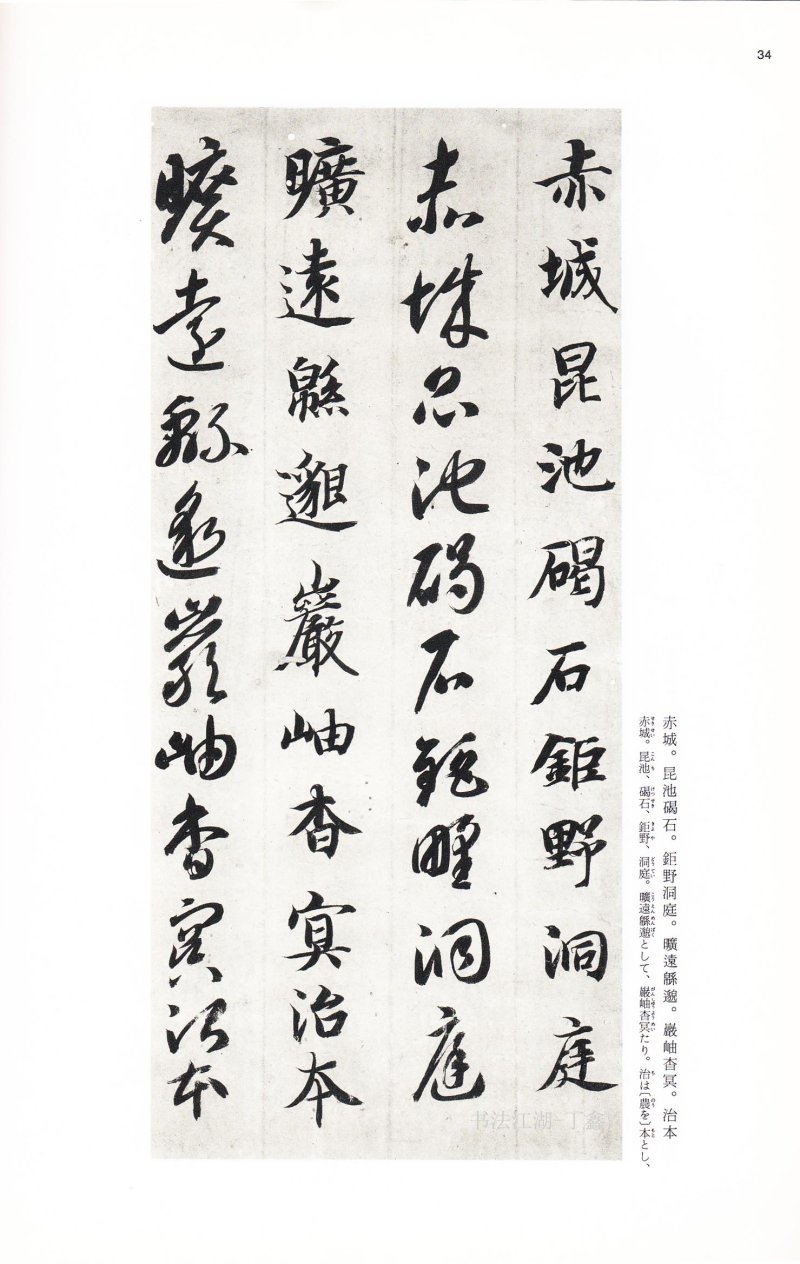 34
赤城昆池碣石鉅野洞庭
赤城昆池碣石鉅野洞庭
曠遠緜邈巖岫杳冥治本
曠遠緜邈巖岫杳冥治本
赤城。昆池碣石。鉅野洞庭。曠遠緜邈。巖岫杳冥。治本
赤城。昆池、碣石、鉅野、洞庭。曠遠緜邈として、巖岫杳冥たり。治は〔農を〕本とし、
书法江湖 丁鑫